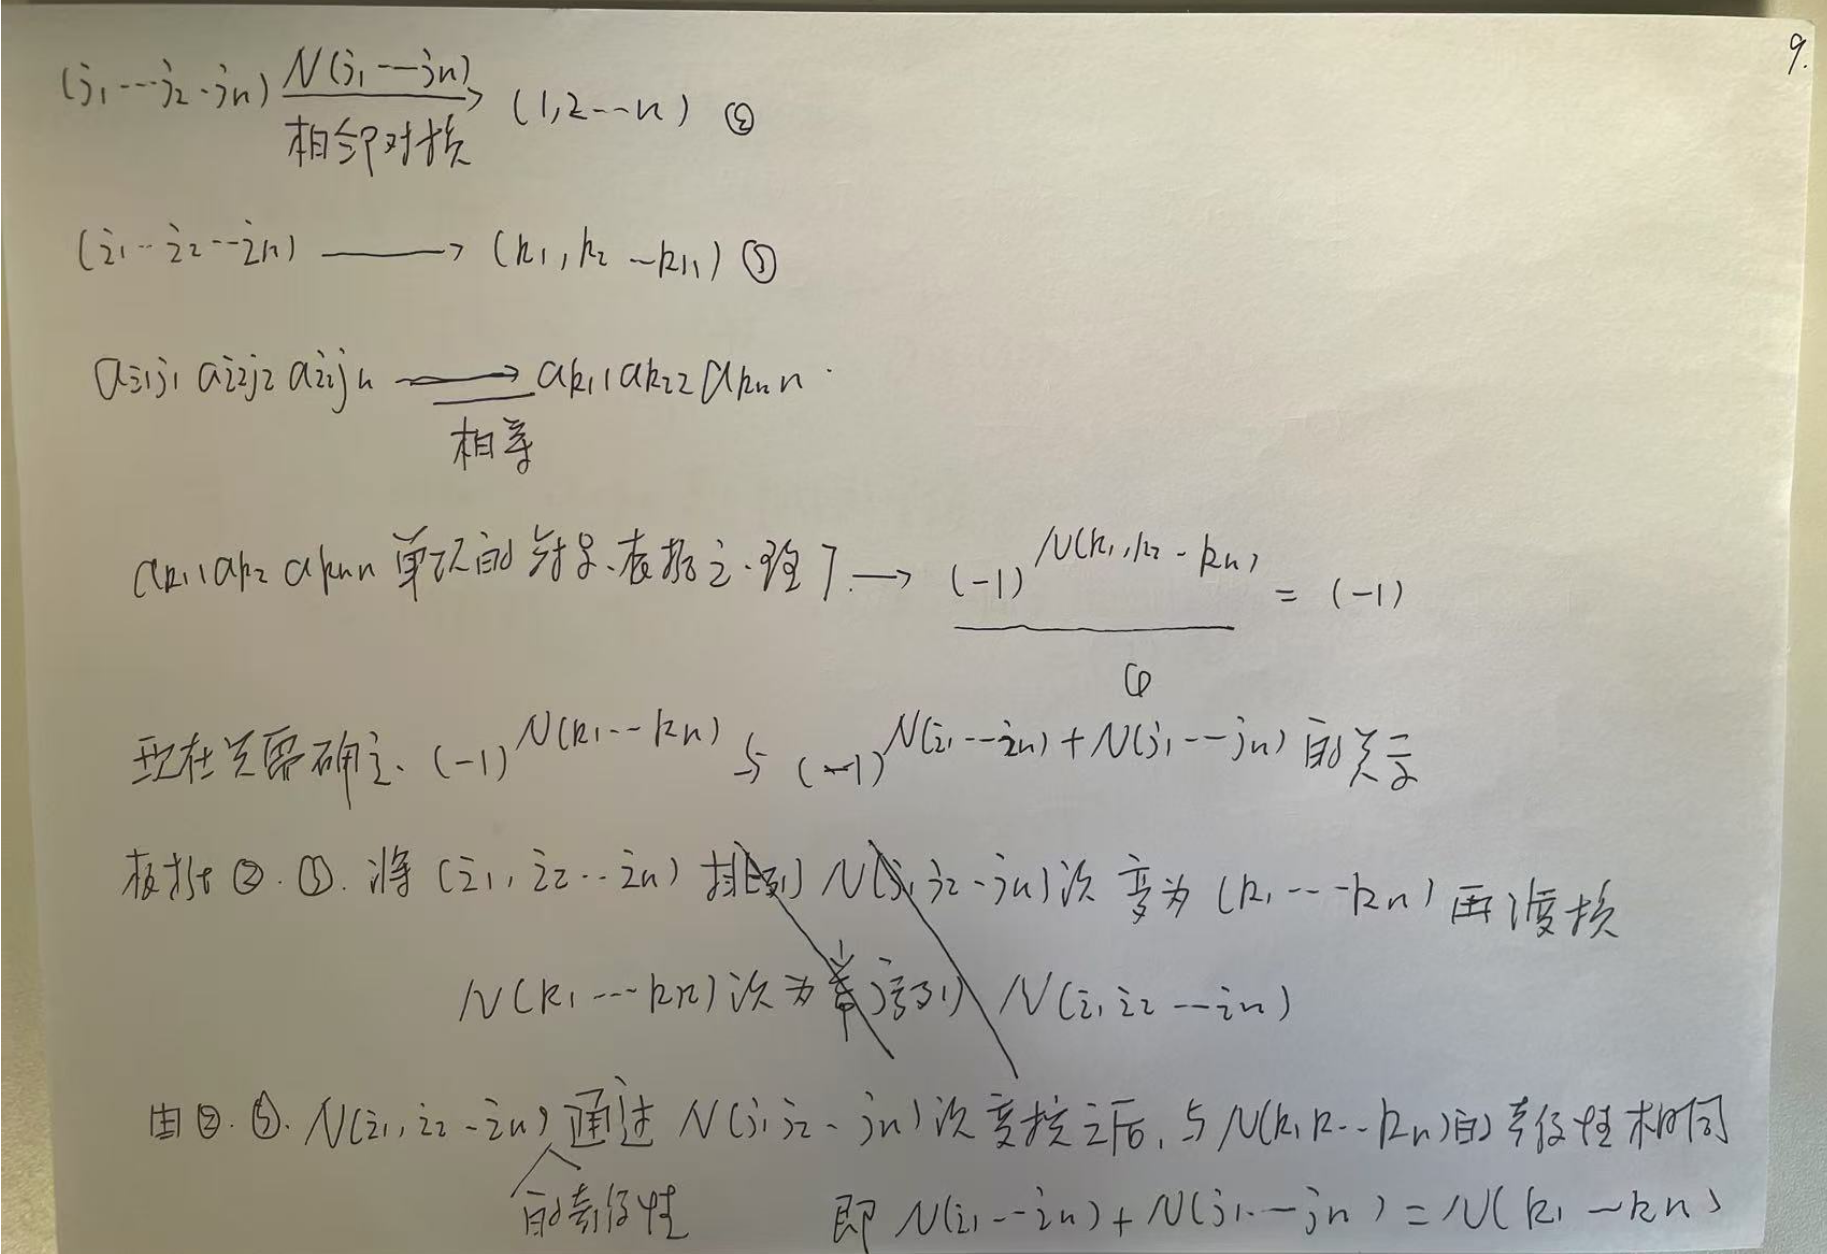 9.
(j1 --- j2 - jn) N(j1 --- jn) → (1,2---n) ②
相邻对换
(i1 -- i2 --- in) → (k1, k2 --- kn) ③
ai1j1 ai2j2 ai2jn → ak11 ak22 aknn.
相等
ak11 ak2 aknn 单项的符号、根据定理7. → (-1)^N(k1,k2 - kn) = (-1)
④
现在关需确定、(-1)^N(k1 --- kn) 与 (-1)^N(i1 --- in) + N(j1 --- jn) 的关系
根据②.③. 将 (i1, i2 -- in) 排列 N(j1 j2 - jn) 次 变为 (k1 --- kn) 再变换
N(k1 --- kn) 次为 序列 N(i1 i2 --- in)
由②.③. N(i1, i2 - in) 通过 N(j1 j2 - jn) 次变换之后, 与 N(k1 k -- kn) 的奇偶性相同
的奇偶性 即 N(i1 --- in) + N(j1 --- jn) = N(k1 --- kn)